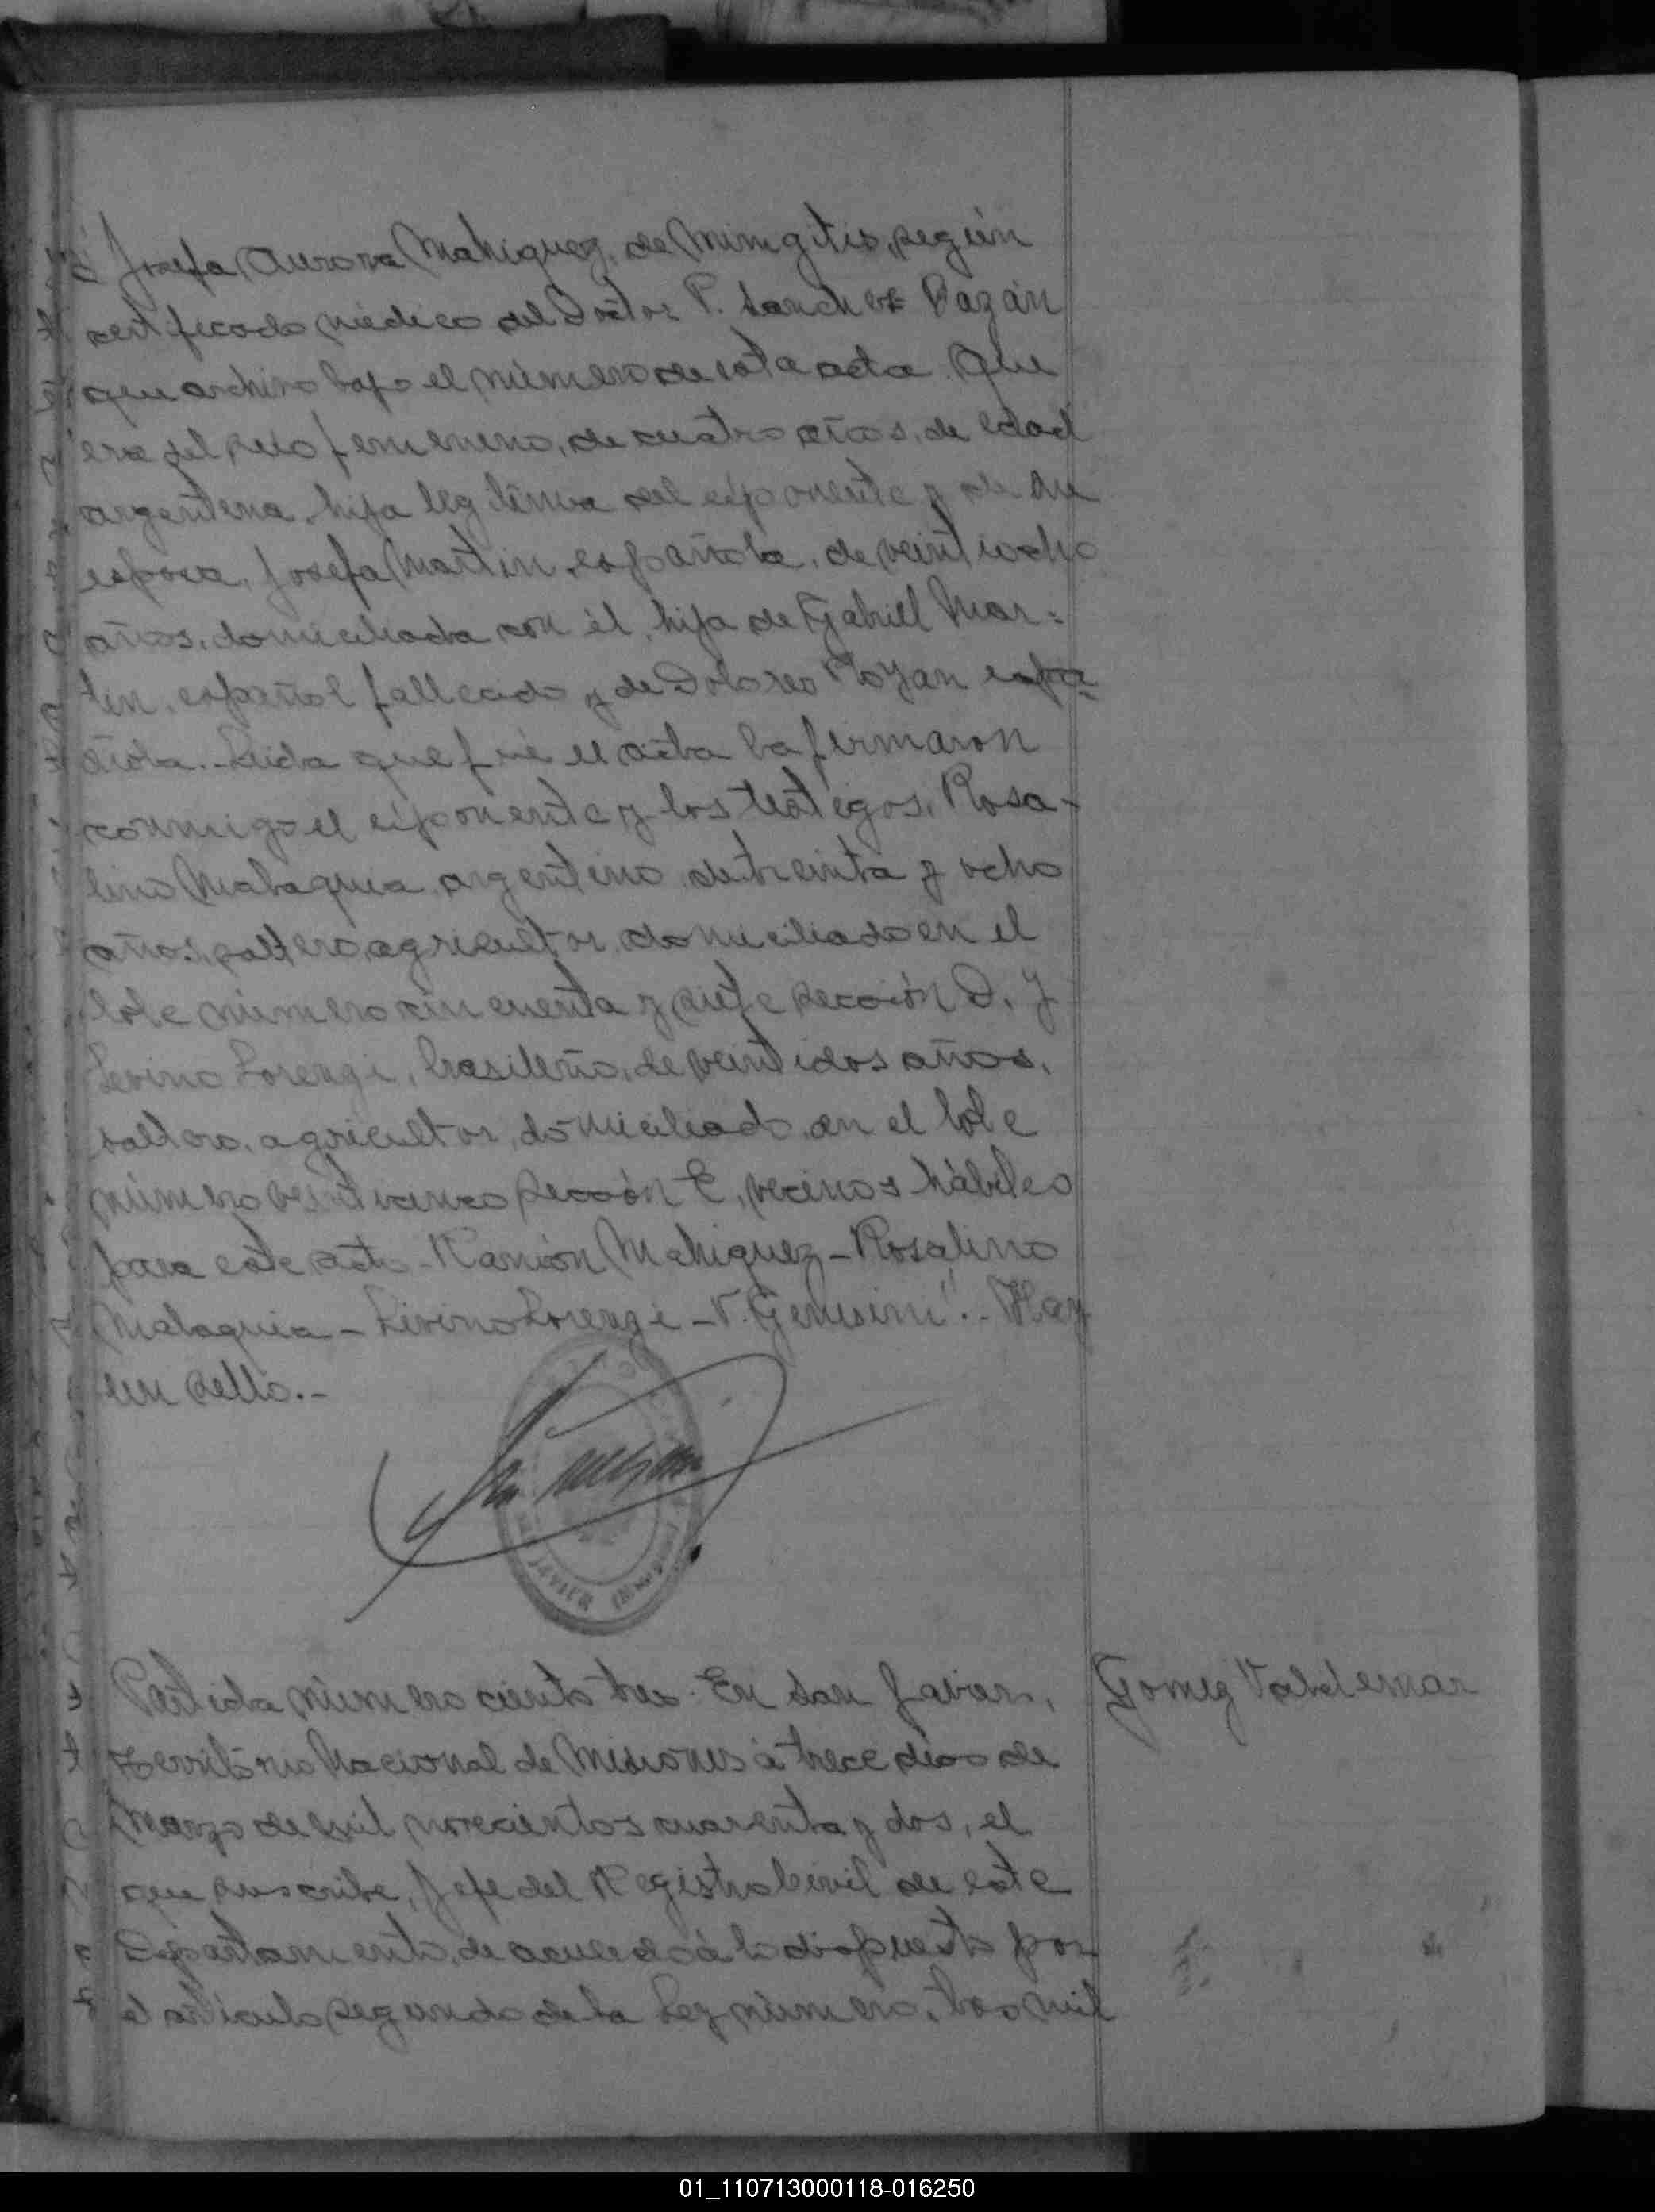 Josefa Aurora Mahiquez, de Miningitis, según
certificado médico del Doctor P. Sanchez Bazán
que archivo bajo el número de esta acta. Que
era del sexo femenino, de cuatro años, de edad
argentina, hija legitima del exponente y de su
esposa, Josefa Martin, española, de veintiocho
años, domiciliada con él, hija de Gabriel Mar=
tin, español fallecido y de Dolores Moyan espa-
ñola.- Leida que fué el acta la firmaron
conmigo el exponente y los testigos, Rosa-
lino Malaquia, argentino, de treinta y ocho
años, soltero, agricultor, domiciliado en el
lote número cincuenta y siete sección D. y
Levino Lorenzi, brasileño, de veintidos años,
soltero, agricultor, domiciliado, en el lote
número veinticinco sección E, vecinos hábiles
para este acto - Ramón Mahiquez - Rosalino
Malaquia - Livino Lorenzi - V. Gemsini".- Hay
un sello.-
JAVIER (Misiones)
Partida número ciento tres. En San Javier,
Gomez Valdemar
Territorio Nacional de Misiones á trece dias de
Marzo de mil novecientos cuarenta y dos, el
que suscribe, Jefe del Registro Civil de este
Departamento, de acuerdo á lo dispuesto por
el artículo segundo de la Ley número, tres mil
01_110713000118-016250